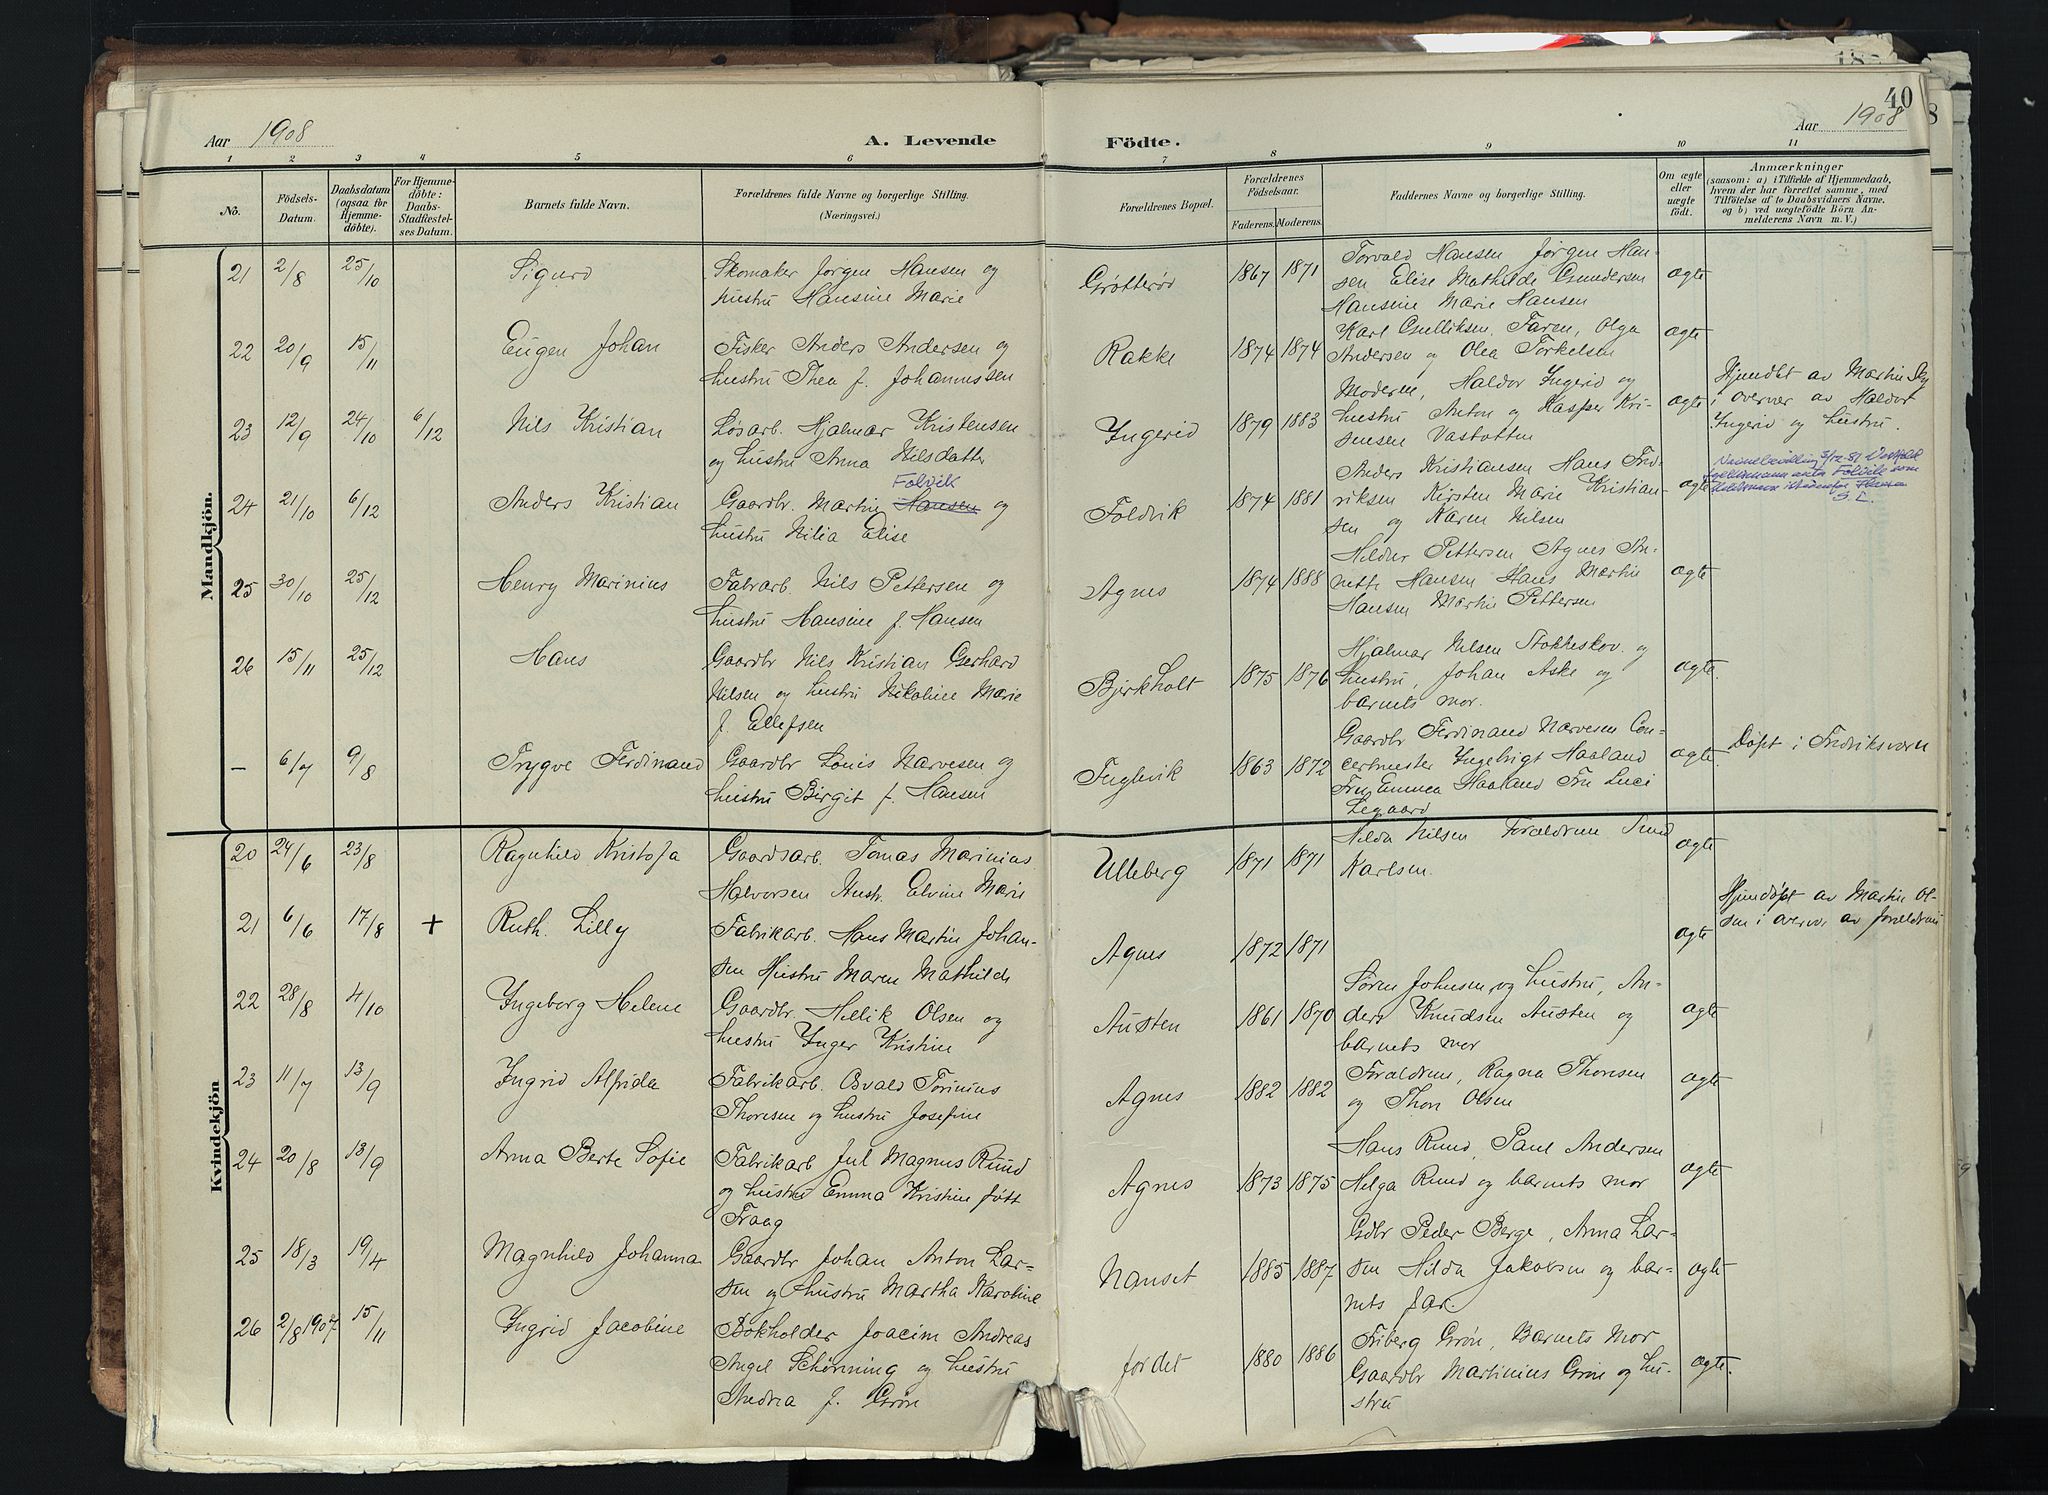 40
Aar 1908
A. Levende
Födte.
Aar 1908
1 2 3 4 5 6 7 8 9 10 11
No.
Födsels-
Datum.
Daabsdatum
(ogsaa for
Hjemme-
döbte).
For Hjemme-
döbte:
Daabs-
Stadfæstel-
ses Datum.
Barnets fulde Navn.
Forældrenes fulde Navne og borgerlige Stilling.
(Næringsvei.)
Forældrenes Bopæl.
Forældrenes
Födselsaar.
Faderens. Moderens.
Faddernes Navne og borgerlige Stilling.
Om ægte
eller
uægte
født.
Anmærkninger
(saasom: a) i Tilfælde af Hjemmedaab,
hvem der har forrettet samme, med
Tilföielse af to Daabsvidners Navne.
og b) ved uægtefödte Börn An-
melderens Navn m. V.)
Mandkjön.
21 2/8 25/10 Sigurd
Skomaker Jørgen Hansen og
hustru Hansine Marie
Grøtterød 1867 1871
Torvald Hansen Jørgen Han-
sen Elise Mathilde Gundersen
Hansine Marie Hansen
ægte
22 20/9 15/11 Eugen Johan
Fisker Anders Andersen og
hustru Thea f. Johannessen
Rakke 1874 1874
Karl Gulliksen, Faren, Olga
Andersen og Olea Torkelsen
ægte
23 12/9 24/10 6/12 Nils Kristian
Løsarb. Hjalmar Kristensen
og hustru Anna Nilsdatter
Ingerid 1879 1883
Moderen, Haldor Ingerid og
hustru Anton og Kasper Kri-
stensen Vastotten
ægte
Hjemdøbt av Martin Sky
i overvær av Haldor
Ingerid og hustru.
24 21/10 6/12 Anders Kristian
Foldvik
Gaardbr. Martin Hansen og
hustru Nilia Elise
Foldvik 1874 1881
Anders Kristiansen Hans Fred-
riksen Kirsten Marie Kristian-
sen og Karen Nilsen
ægte
Navnebevilling 3/12-81 Vestfold
fylkesmann Foldvik som
S. L.
25 30/10 25/12 Henry Marinius
Fabrarb. Nils Pettersen og
hustru Hansine f. Hansen
Agnes 1874 1888
Hildur Pettersen Agnes An-
nette Hansen Hans Martin
Hansen Martin Pettersen
ægte
26 15/11 25/12 Hans
Gaardbr Nils Kristian Gerhard
Nilsen og hustru Nikoline Marie
f. Ellefsen
Bjerkholt 1875 1876
Hjalmar Nilsen Stokkeskov og
hustru, Johan Aske og
barnets mor.
ægte.
— 6/7 9/8 Trygve Ferdinand
Gaardbr Louis Narvesen og
hustru Birgit f. Hansen
Fuglevik 1863 1872
Gaardbr Ferdinand Narvesen Con-
certmester Ingebrigt Haaland
Fru Emmea Haaland Fru Luci
Legaard
ægte.
Døpt i Fredriksværn
Kvindekjön
20 24/6 23/8 Ragnhild Kristofa
Gaardsarb. Tomas Marinius
Halvorsen Hustr. Elvine Marie
Ulleberg 1871 1871
Hilda Nilsen Forældrene
Karlsen.
ægte
21 6/6 17/8 + Ruth Lilly
Fabrikarb. Hans Martin Johan-
sen Hustru Maren Mathilde
Agnes 1872 1871
ægte
Hjemdøpt av Martin Ol-
sen i overvær av forældrene
22 28/8 4/10 Ingeborg Helene
Gaardbr. Hellik Olsen og
hustru Inger Kristine
Austen 1861 1870
Søren Johnsen og hustru, An-
ders Knudsen Austen og
barnets mor
ægte
23 11/7 13/9 Ingrid Alfrida
Fabrikarb. Osvald Torinius
Thoresen og hustru Josefine
Agnes 1882 1882
Forældrene, Ragna Thoresen
og Thorn Olsen
ægte
24 20/8 13/9 Anna Berte Sofie
Fabrikarb Jul Magnus Ruud
og hustru Emma Kristine født
Traag
Agnes 1873 1875
Hans Ruud, Paul Andersen
Helga Ruud og barnets mor
ægte
25 18/3 19/4 Magnhild Johanna
Gaardbr Johan Anton Lar-
sen og hustru Martha Karoline
Nanset 1885 1887
Gdbr Peder Berge, Anna Lar-
sen Hilda Jakobsen og bar-
nets far.
ægte
26 2/8 1907 15/11 Ingrid Jacobine
Bokholder Joacim Andreas
Angel Schønning og hustru
Andrea f. Grøn
Jordet 1880 1886
Friberg Grøn, Barnets Mor
Gaardbr Martinius Grøn og hu-
stru
ægte.